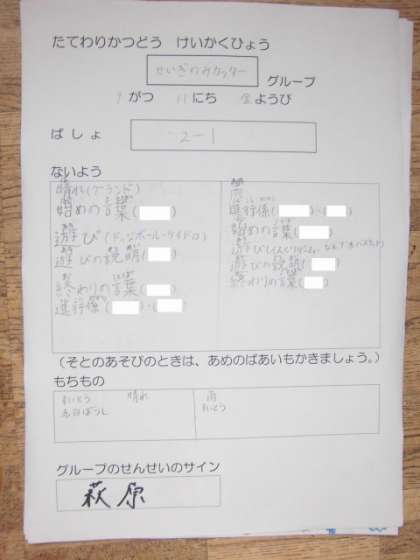 たてわりかつどう けいかくひょう
せいぎのみカッター
グループ
9 がつ 11 にち 金 ようび
ばしょ
2-1
ないよう
晴れ(グランド)
始めの言葉( )
遊び(ドッヂボール・ケイドロ)
遊びの説明( )
終わりの言葉( )
進行係( )・( )
雨
進行係( )・( )
始めの言葉( )
遊び(なんでもバスケット)
遊びの説明( )
終わりの言葉( )
(そとのあそびのときは、あめのばあいもかきましょう。)
もちもの
晴れ
すいとう
あかぼうし
雨
すいとう
グループのせんせいのサイン
萩原